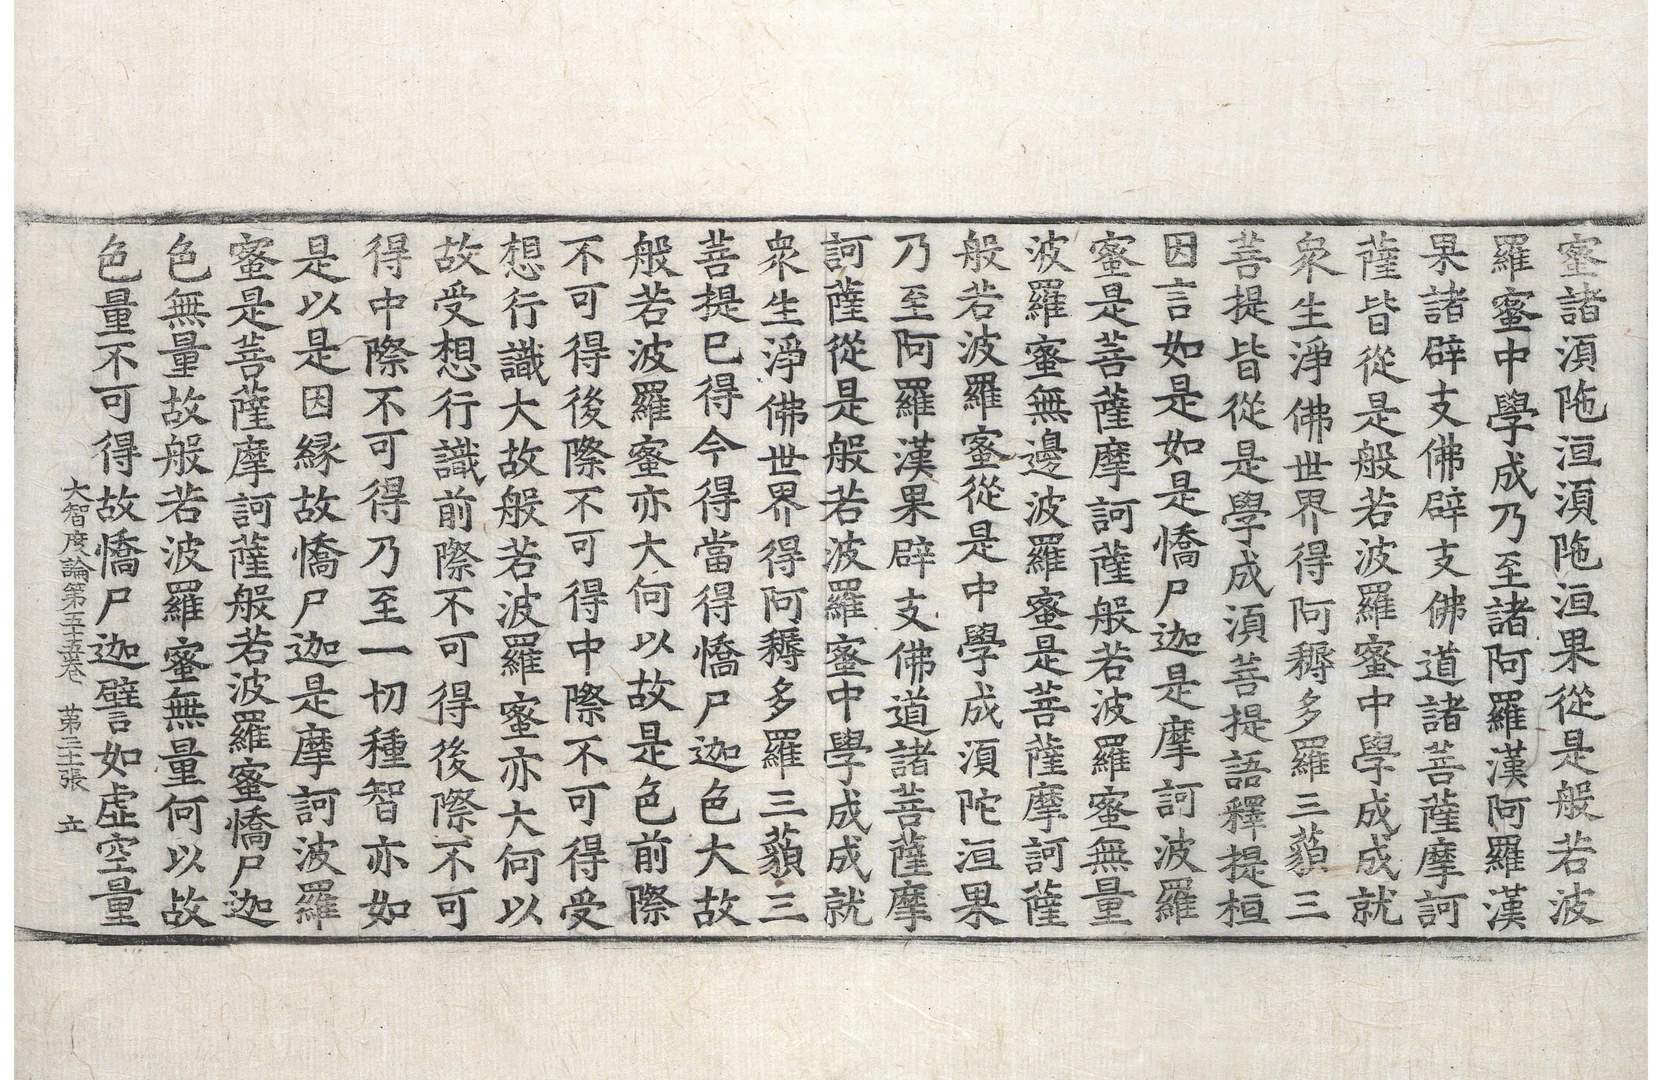 蜜諸湏陁洹湏陁洹果從是般若波
羅蜜中學成乃至諸阿羅漢阿羅漢
果諸辟支佛辟支佛道諸菩薩摩訶
薩皆從是般若波羅蜜中學成成就
衆生淨佛世界得阿耨多羅三藐三
菩提皆從是學成湏菩提語釋提桓
因言如是如是憍尸迦是摩訶波羅
蜜是菩薩摩訶薩般若波羅蜜無量
波羅蜜無邊波羅蜜是菩薩摩訶薩
般若波羅蜜從是中學成湏陀洹果
乃至阿羅漢果辟支佛道諸菩薩摩
訶薩從是般若波羅蜜中學成成就
衆生淨佛世界得阿耨多羅三藐三
菩提已得今得當得憍尸迦色大故
般若波羅蜜亦大何以故是色前際
不可得後際不可得中際不可得受
想行識大故般若波羅蜜亦大何以
故受想行識前際不可得後際不可
得中際不可得乃至一切種智亦如
是以是因緣故憍尸迦是摩訶波羅
蜜是菩薩摩訶薩般若波羅蜜憍尸迦
色無量故般若波羅蜜無量何以故
色量不可得故憍尸迦譬如虛空量
大智度論第五十五卷 第二十一張 立